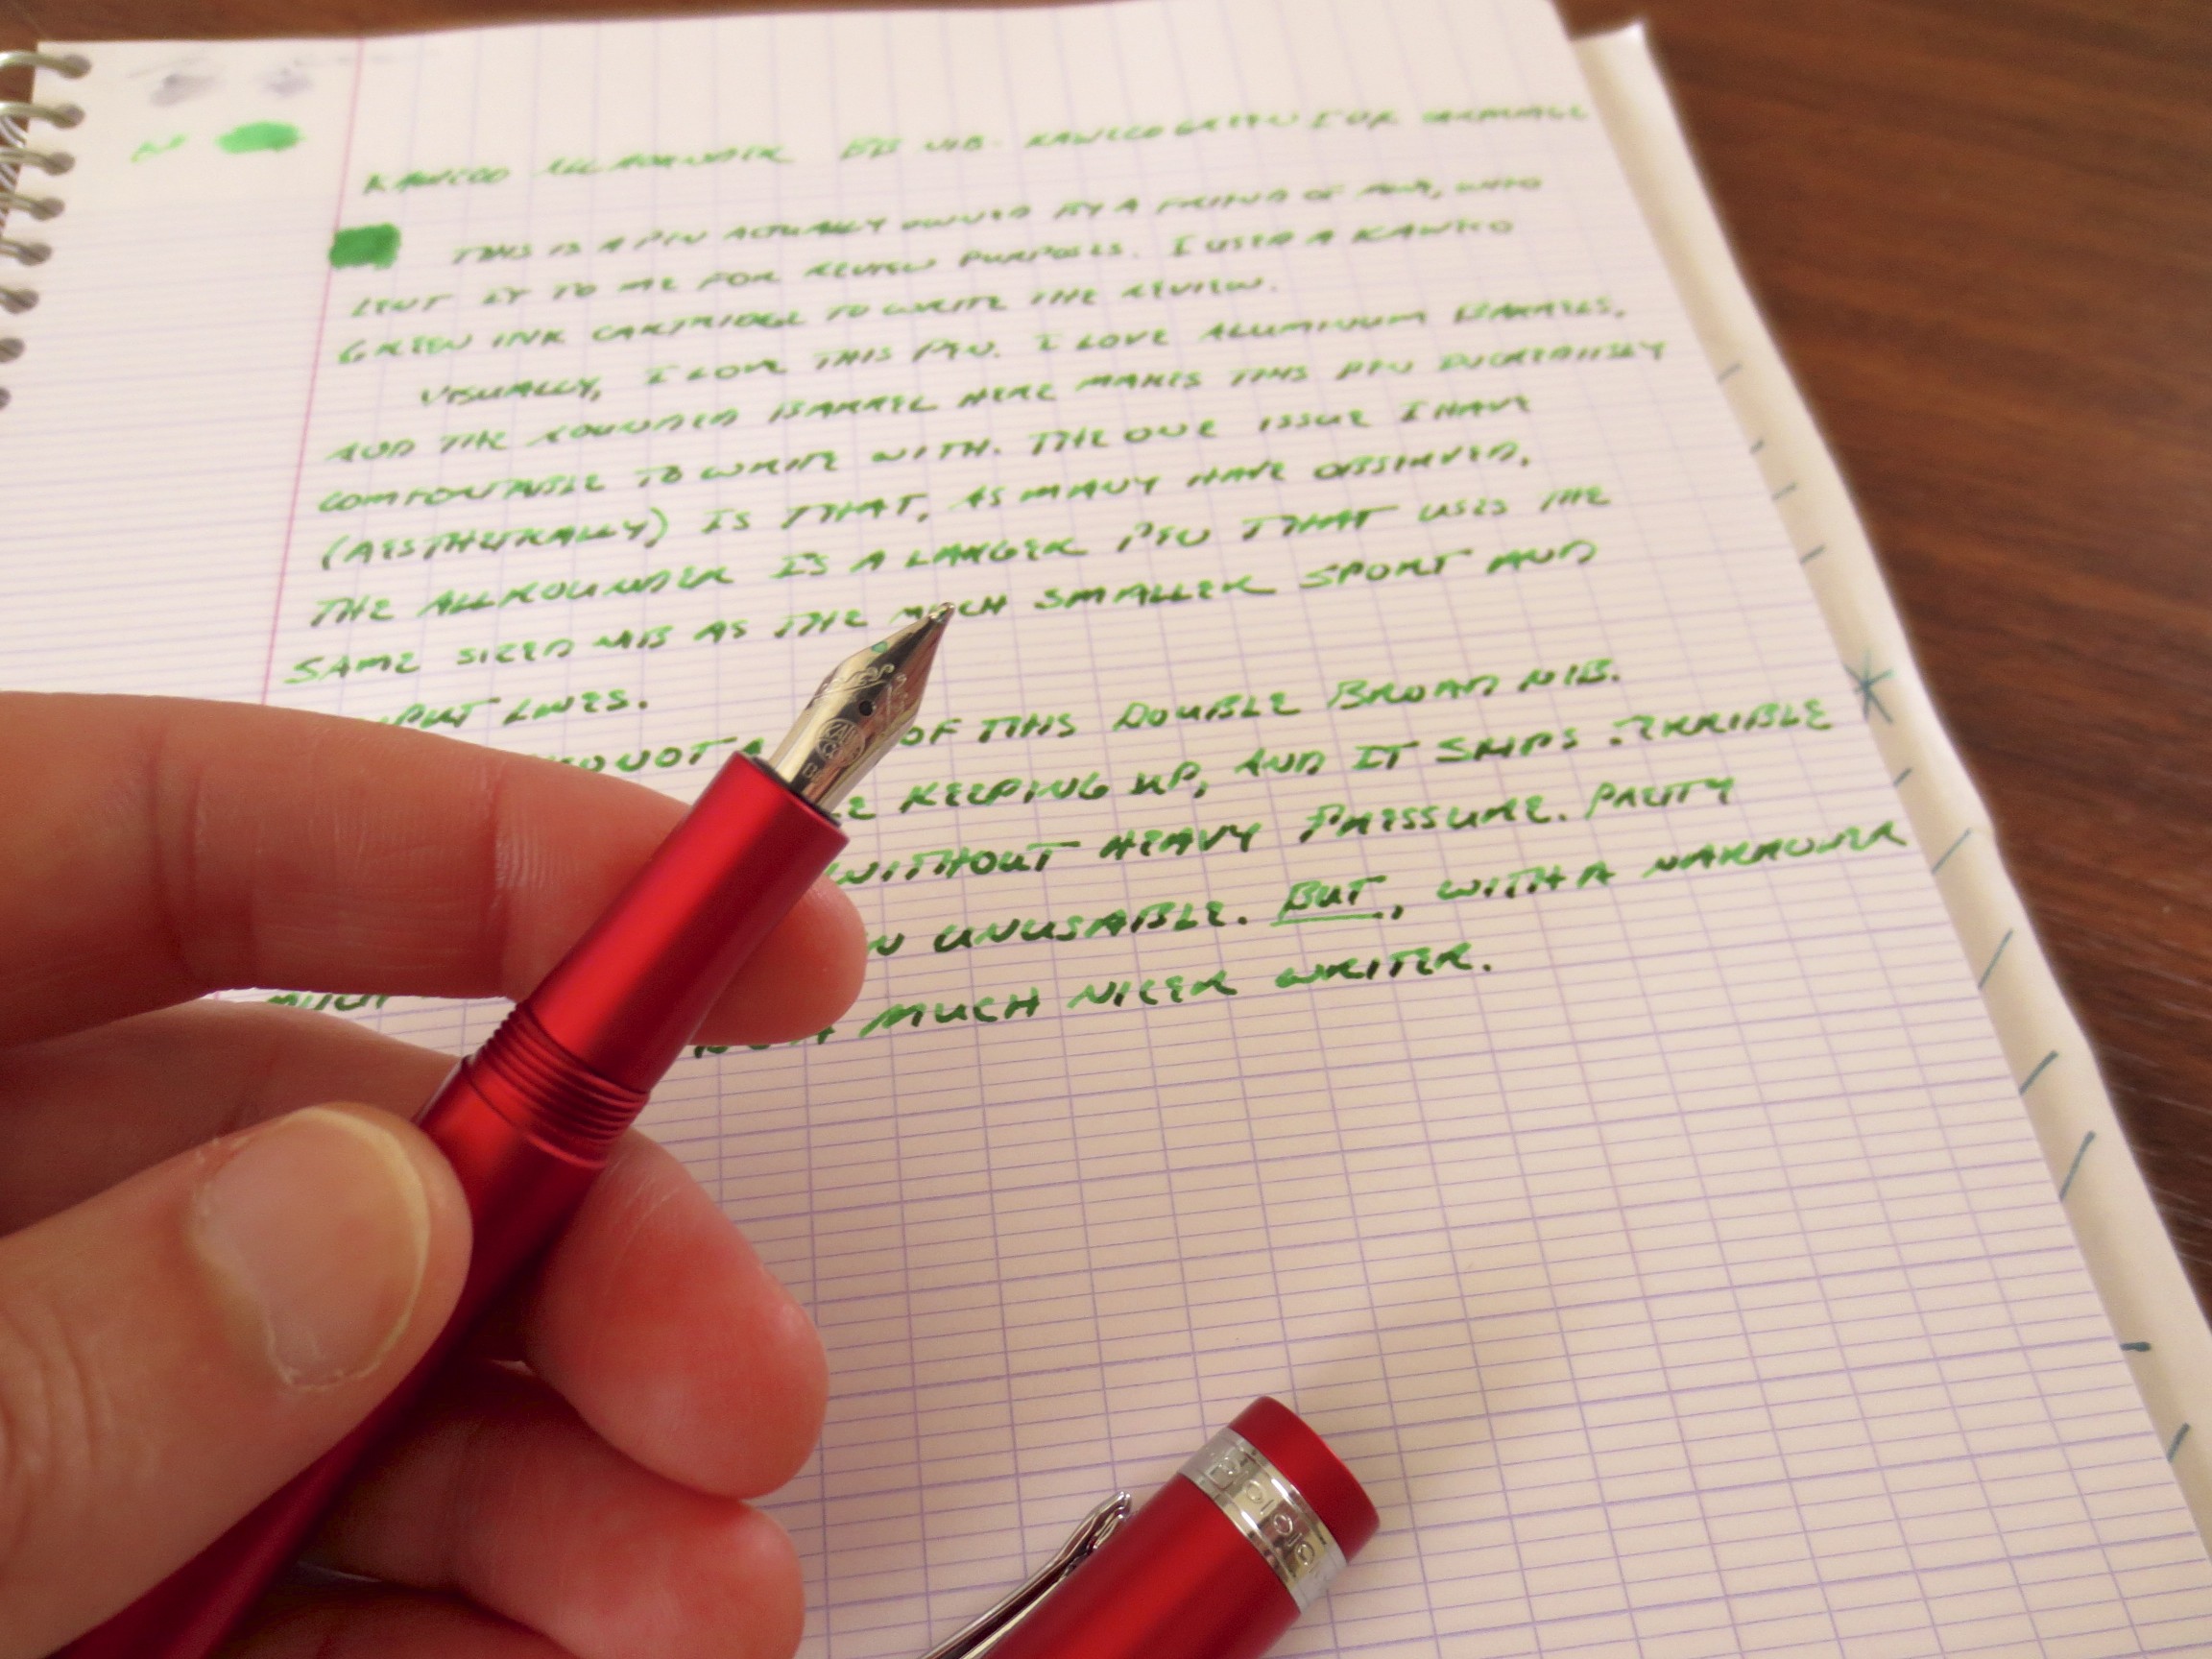 KAWECO ALLROUNDER BB NIB. KAWECO GREEN INK CARTRIDGE
THIS IS A PEN ACTUALLY OWNED BY A FRIEND OF MINE, WHO
LENT IT TO ME FOR REVIEW PURPOSES. I USED A KAWECO
GREEN INK CARTRIDGE TO WRITE THE REVIEW.
VISUALLY, I LOVE THIS PEN. I LOVE ALUMINUM BARRELS,
AND THE ROUNDED BARREL HERE MAKES THIS PEN INCREDIBLY
COMFORTABLE TO WRITE WITH. THE ONE ISSUE I HAVE
(AESTHETICALLY) IS THAT, AS MANY HAVE OBSERVED,
THE ALLROUNDER IS A LARGER PEN THAT USES THE
SAME SIZED NIB AS THE MUCH SMALLER SPORT AND
LINES.
NOT A OF THIS DOUBLE BROAD NIB.
KEEPING UP, AND IT SKIPS TERRIBLE
WITHOUT HEAVY PRESSURE. PRETTY
UNUSABLE. BUT, WITH A NARROWER
MUCH NICER WRITER.